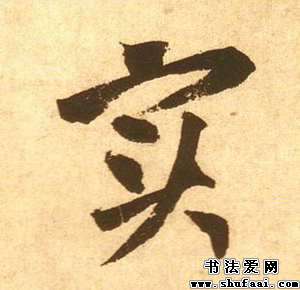 实
书法爱网
www.shufaai.com